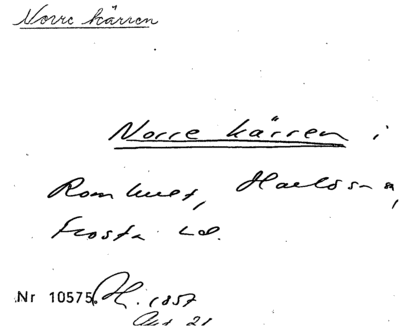 Norre kärren
Norre kärren i
Romhult, Harlösa s,
Frosta hd.
Nr 10575. H. 1857
Akt 21